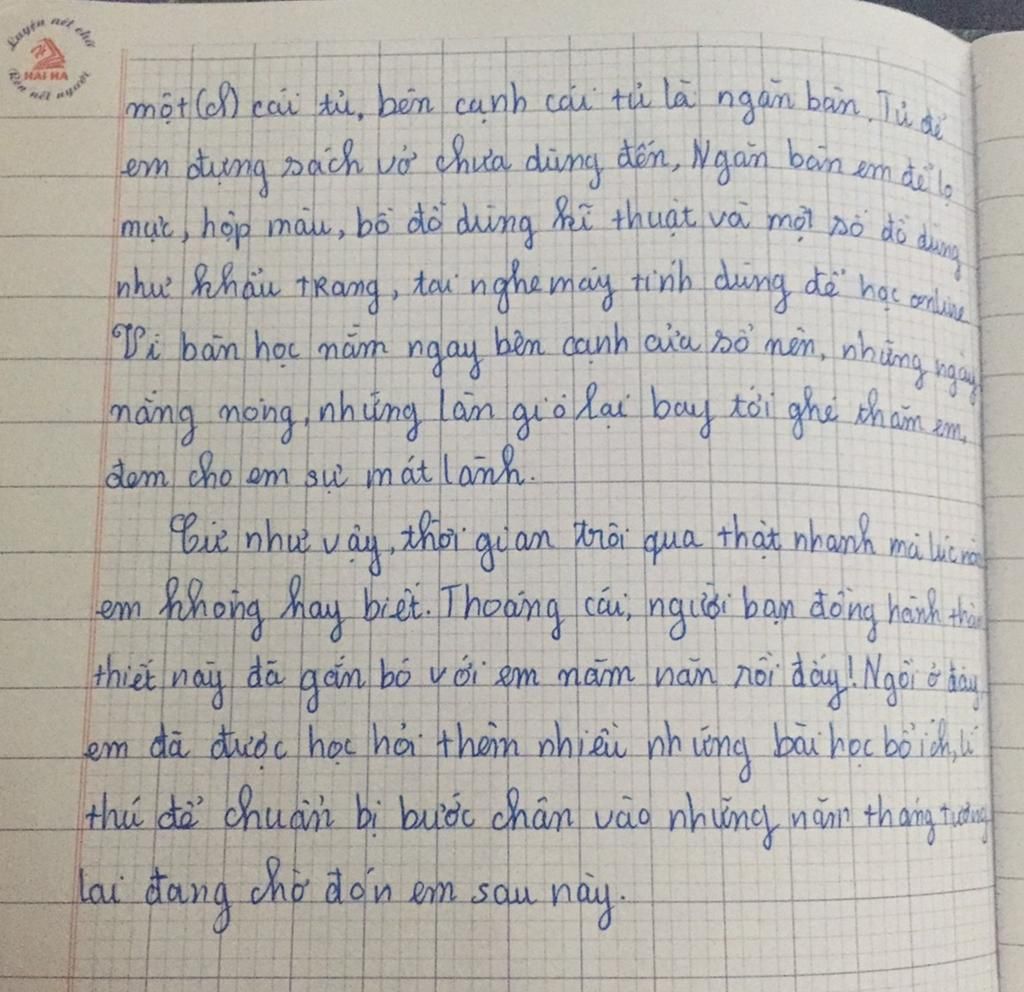 Luyện nét chữ
HẢI HÀ
Rèn nết người
một (ch) cái tủ, bên cạnh cái tủ là ngăn bàn. Tủ để
em đựng sách vở chưa dùng đến, Ngăn bàn em để lọ
mực, hộp màu, bộ đồ dùng kĩ thuật và một số đồ dùng
như khẩu trang, tai nghe máy tính dùng để học online
Vì bàn học nằm ngay bên cạnh cửa sổ nên, những ngày
nắng nóng, những làn gió lại bay tới ghé thăm em,
đem cho em sự mát lành.
Cứ như vậy, thời gian trôi qua thật nhanh mà lúc nào
em không hay biết. Thoáng cái, người bạn đồng hành thân
thiết này đã gắn bó với em năm năn rồi đấy! Ngồi ở đây
em đã được học hỏi thêm nhiều những bài học bổ ích, lí
thú để chuẩn bị bước chân vào những năm tháng tương
lai đang chờ đón em sau này.